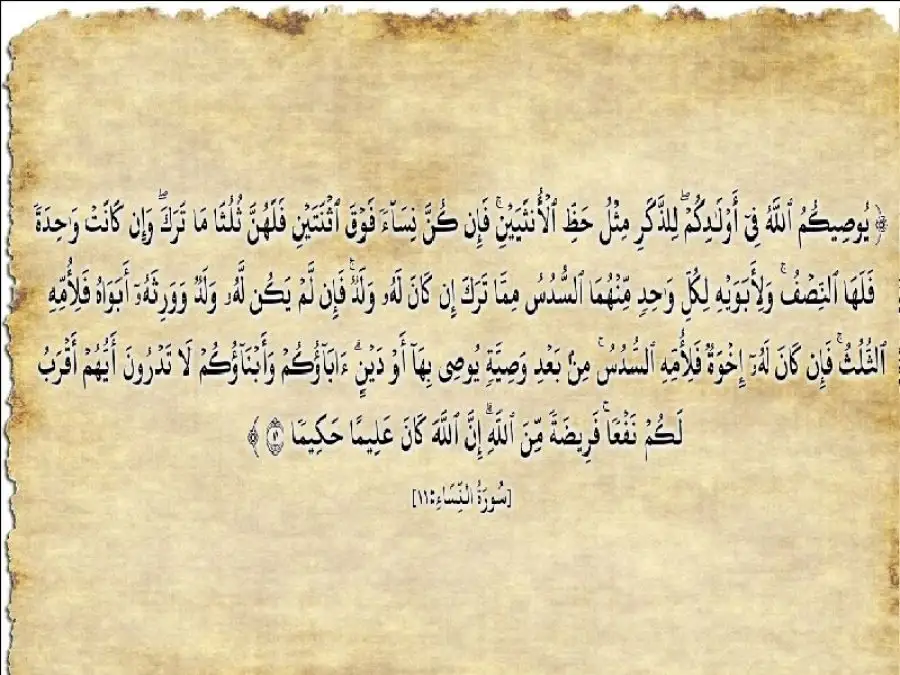 ﴿ يُوصِيكُمُ ٱللَّهُ فِيٓ أَوۡلَٰدِكُمۡۖ لِلذَّكَرِ مِثۡلُ حَظِّ ٱلۡأُنثَيَيۡنِۚ فَإِن كُنَّ نِسَآءٗ فَوۡقَ ٱثۡنَتَيۡنِ فَلَهُنَّ ثُلُثَا مَا تَرَكَۖ وَإِن كَانَتۡ وَٰحِدَةٗ
فَلَهَا ٱلنِّصۡفُۚ وَلِأَبَوَيۡهِ لِكُلِّ وَٰحِدٖ مِّنۡهُمَا ٱلسُّدُسُ مِمَّا تَرَكَ إِن كَانَ لَهُۥ وَلَدٞۚ فَإِن لَّمۡ يَكُن لَّهُۥ وَلَدٞ وَوَرِثَهُۥٓ أَبَوَاهُ فَلِأُمِّهِ
ٱلثُّلُثُۚ فَإِن كَانَ لَهُۥٓ إِخۡوَةٞ فَلِأُمِّهِ ٱلسُّدُسُۚ مِنۢ بَعۡدِ وَصِيَّةٖ يُوصِي بِهَآ أَوۡ دَيۡنٍۗ ءَابَآؤُكُمۡ وَأَبۡنَآؤُكُمۡ لَا تَدۡرُونَ أَيُّهُمۡ أَقۡرَبُ
لَكُمۡ نَفۡعٗاۚ فَرِيضَةٗ مِّنَ ٱللَّهِۗ إِنَّ ٱللَّهَ كَانَ عَلِيمًا حَكِيمٗا ١١ ﴾
[سُورَةُ النِّسَاءِ:١١]